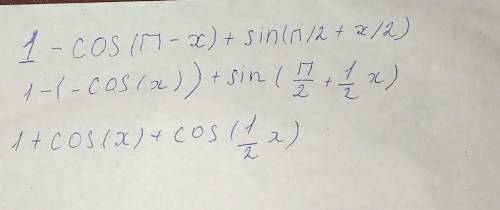 1 - cos(π - x) + sin(π/2 + x/2)
1 - (-cos(x)) + sin(π/2 + 1/2 x)
1 + cos(x) + cos(1/2 x)